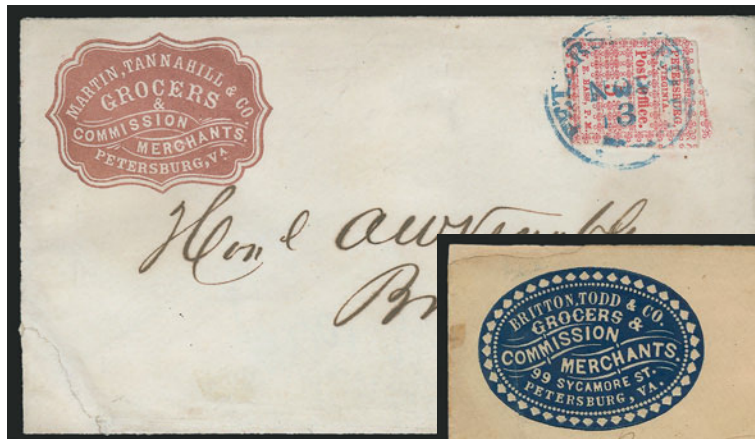 MARTIN, TANNAHILL & CO
GROCERS
&
COMMISSION
MERCHANTS.
PETERSBURG, VA
PETERSBURG,
VIRGINIA.
Post Office.
W. E. BASS, P. M.
13
Hon l A W
BRITTON, TODD & CO.
GROCERS &
COMMISSION
MERCHANTS.
99 SYCAMORE ST.
PETERSBURG, VA.